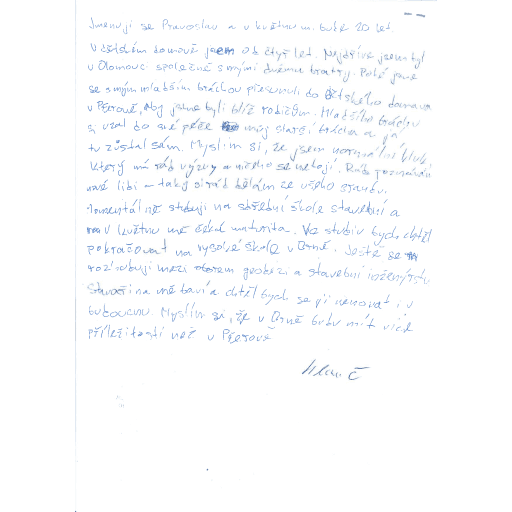 Jmenuji se Pravoslav a v květnu mi bude 20 let.
V dětském domově jsem od čtyř let. Nejdříve jsem byl
v Olomouci společně s mými dvěma bratry. Poté jsme
se s mým mladším bráchou přesunuli do Dětského domova
v Přerově, aby jsme byli blíž rodičům. Mladšího bráchu
si vzal do své péče můj starší brácha a já
tu zůstal sám. Myslím si, že jsem normální kluk,
který má rád výzvy a ničeho se nebojí. Rád poznávám
nové lidi a taky si rád dělám ze všeho srandu.
Momentálně studuji na střední škole stavební a
v květnu mě čeká maturita. Ve studiu bych chtěl
pokračovat na vysoké škole v Brně. Ještě se
rozhoduji mezi oborem geodézi a stavební inženýrství.
Stavařina mě baví a chtěl bych se jí věnovat i v
budoucnu. Myslím si, že v Brně budu mít více
příležitostí než v Přerově